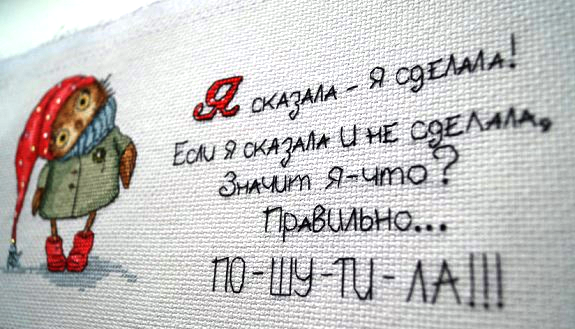 Я сказала - я сделала!
Если я сказала и не сделала,
Значит я-что?
Правильно...
ПО-ШУ-ТИ-ЛА!!!